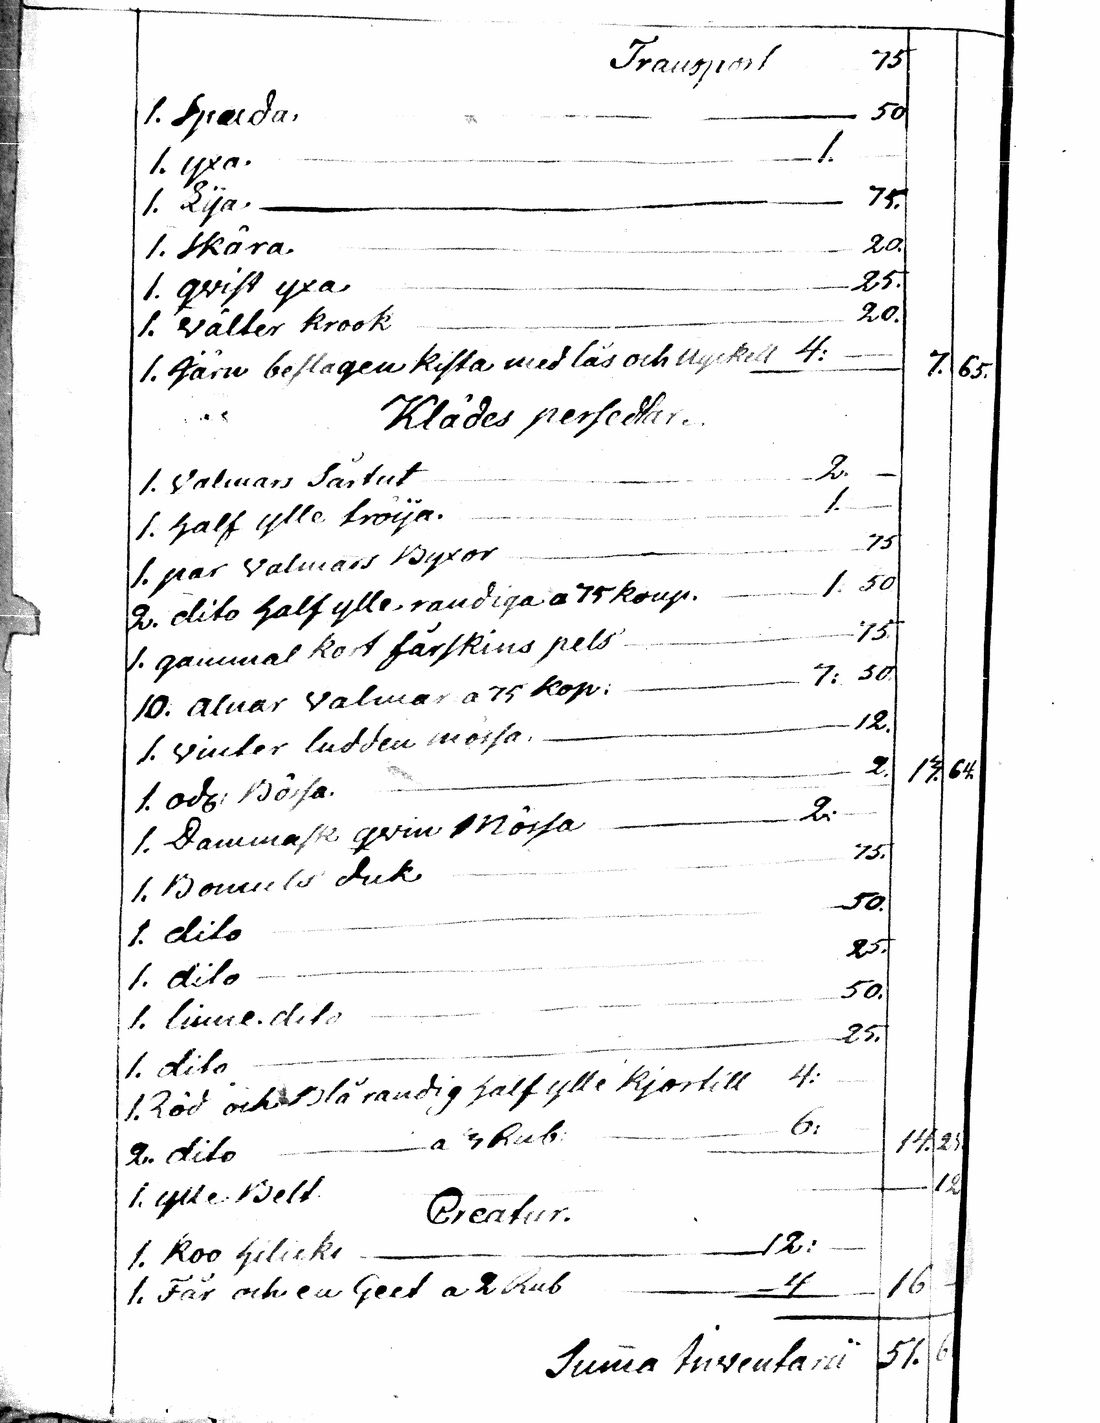 Transport 75
1. Spada. 50
1. yxa. 1.
1. Lija. 75.
1. Skära. 20.
1. qvist yxa. 25.
1. Välter krook 20.
1. Järn beslagen kista med lås och Nyckell 4: 7. 65.
Klädes persedlar.
1. Valmars Sårtut 2.
1. half ylle tröÿa. 1.
1. par Valmars Byxor 75
2. dito half ylle randiga a 75 koup. 1. 50
1. gammal kort fårskins pels 75.
10. alnar Valmar a 75 kop: 7: 50.
1. vinter ludden mössa. 12.
1. Mössa. 2. 64.
1. Dammask qvin Mössa 2:
1. Bomuls duk 75.
1. dito 50.
1. dito 25.
1. linne dito 50.
1. dito 25.
1. Röd och Blå randig half ylle kjortill 4:
2. dito a 3 Rub: 6: 14. 25.
1. ylle Belt 12
Creatur.
1. Koo 12:
1. Får och en Geet a 2 Rub 4 16
Summa Inventarii 51. 6